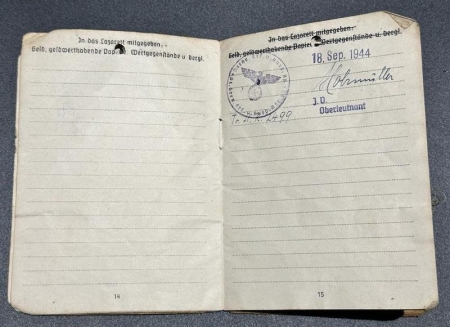 In das Lazarett mitgegeben.
Geld, geldwerthabende Pap. Wertgegenstände u. dergl.
14
In das Lazarett mitgegeben.
Geld, geldwerthabende Papier Wertgegenstände u. dergl.
18. Sep. 1944
J.O.
Oberleutnant
15